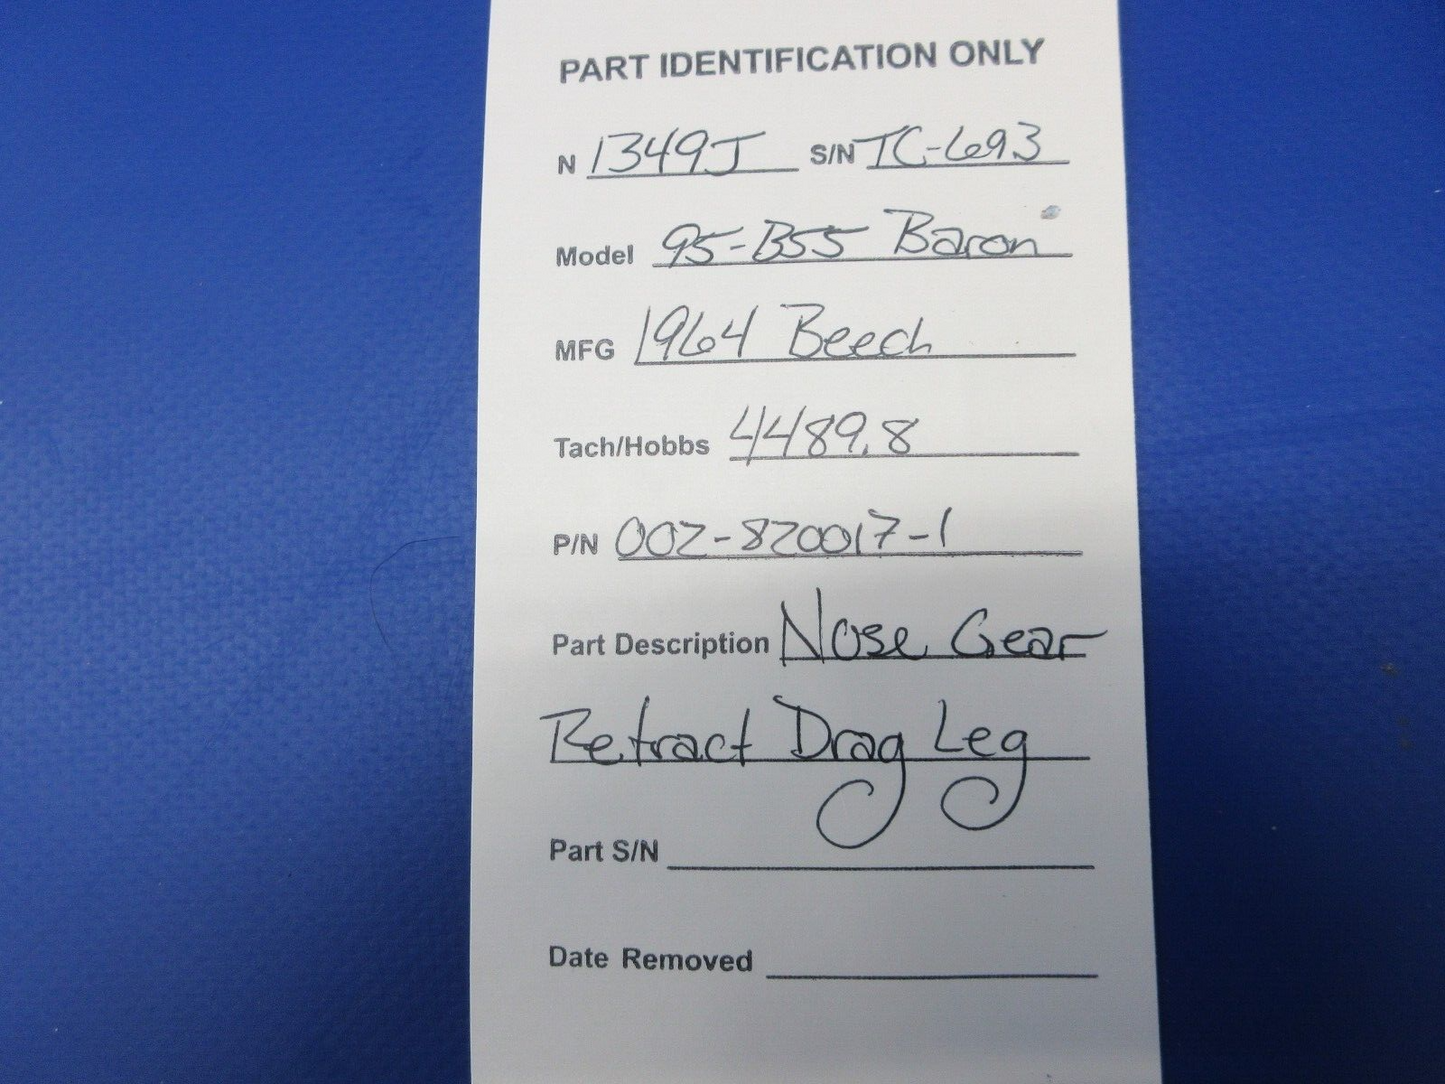 PART IDENTIFICATION ONLY
N 1349J S/N TC-693
Model 95-B55 Baron
MFG 1964 Beech
Tach/Hobbs 4489.8
P/N 002-820017-1
Part Description Nose Gear
Retract Drag Leg
Part S/N
Date Removed